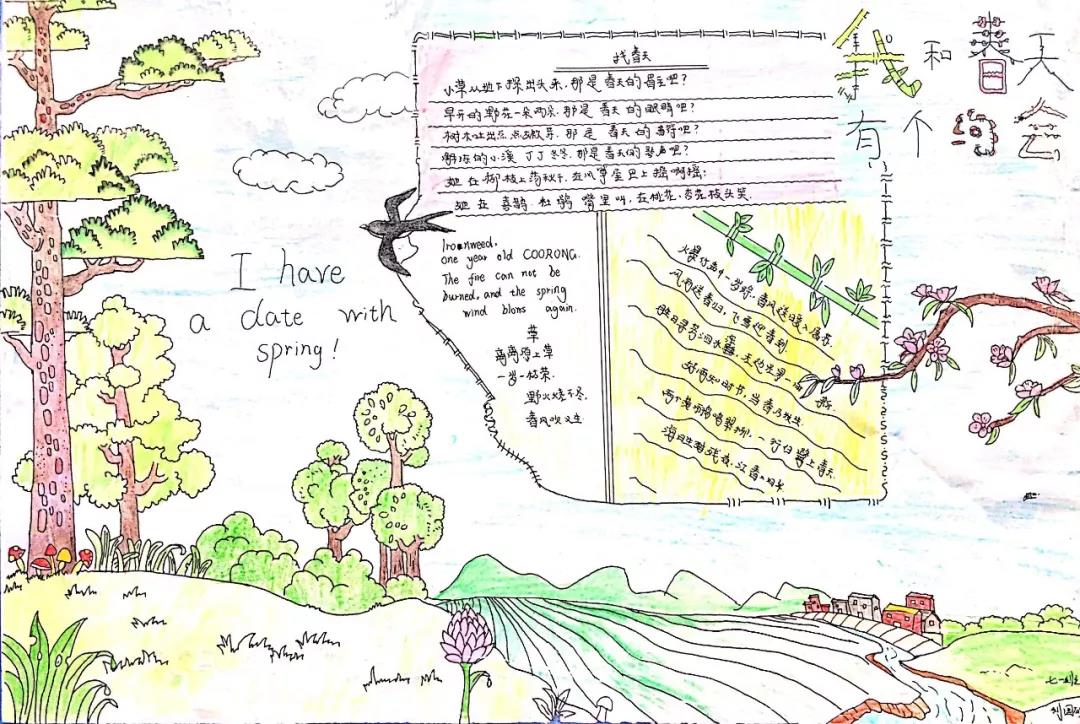 我和春天
有个约会
找春天
小草从地下探出头来,那是春天的眉毛吧?
早开的野花一朵两朵,那是春天的眼睛吧?
树木吐出点点嫩芽,那是春天的音符吧?
解冻的小溪丁丁冬冬,那是春天的琴声吧?
她在柳枝上荡秋千,在风筝尾巴上摇啊摇;
她在喜鹊、杜鹃嘴里叫,在桃花、杏花枝头笑.
I have
a date with
spring!
Ironweed,
one year old COORONG.
The fire can not be
burned, and the spring
wind blows again.
草
离离原上草
一岁一枯荣.
野火烧不尽,
春风吹又生
爆竹声中一岁除,春风送暖入屠苏.
风雨送春归,飞雪迎春到.
胜日寻芳泗水滨,无边光景一时新.
好雨知时节,当春乃发生.
两个黄鹂鸣翠柳,一行白鹭上青天.
海日生残夜,江春入旧年